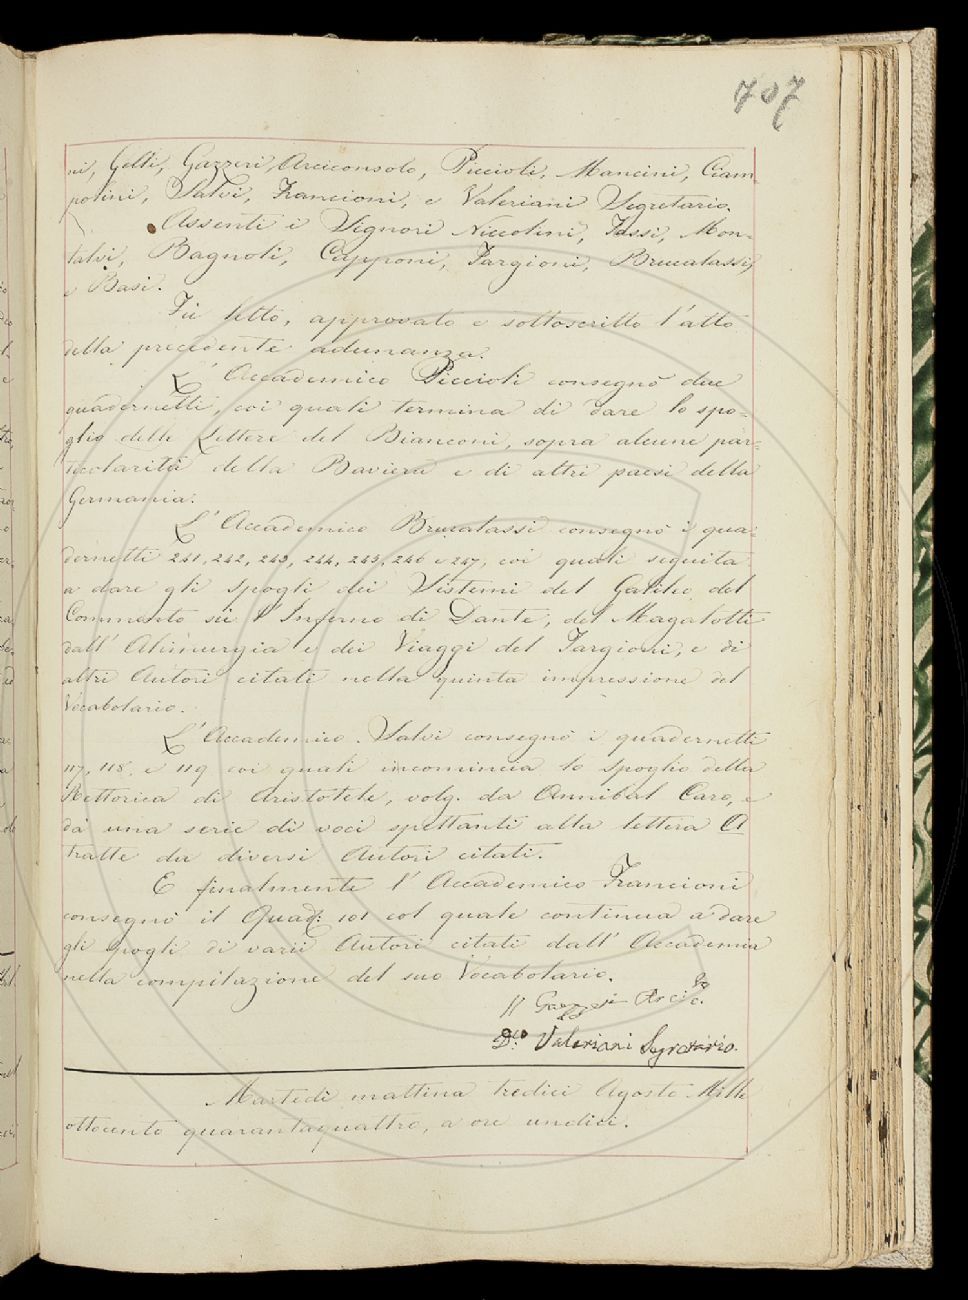 707
ni, Gelli, Gazzeri, Arciconsolo, Piccioli, Mancini, Ciam-
polini, Salvi, Francioni, e Valeriani Segretario.
Assenti i Signori Niccolini, Tassi, Mon-
talvi, Bagnoli, Capponi, Targioni, Brucalassi,
e Basi.
Fù letto, approvato e sottoscritto l'atto
della precedente adunanza.
L'Accademico Piccioli consegnò due
quadernetti, coi quali termina di dare lo spo-
glio delle Lettere del Bianconi, sopra alcune par-
ticolarità della Baviera e di altri paesi della
Germania.
L'Accademico Brucalassi consegnò i qua-
dernetti 241, 242, 243, 244, 245, 246 e 247, coi quali seguita
a dare gli spogli dei Sistemi del Galileo, del
Commento sù l'Inferno di Dante, del Magalotti
dall'Alimurgia e dei Viaggi del Targioni, e di
altri Autori citati nella quinta impressione del
Vocabolario.
L'Accademico Salvi consegnò i quadernetti
117, 118, e 119 coi quali incomincia lo spoglio della
Rettorica di Aristotele, volg. da Annibal Caro, e
dà una serie di voci spettanti alla lettera A
tratte da diversi Autori citati.
E finalmente l'Accademico Francioni
consegnò il Quad: 101 col quale continua a dare
gli spogli di varii Autori citati dall'Accademia
nella compilazione del suo Vocabolario.
Gazzeri Arcic.
D.co Valeriani Segretario.
Martedì mattina tredici Agosto Mille
ottocento quarantaquattro, a ore undici.